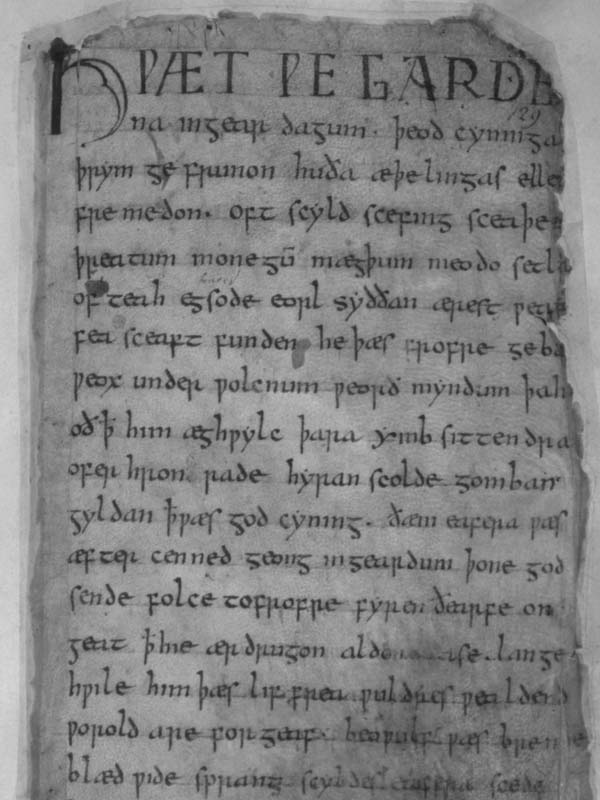 HǷÆT ǷE GARDE
na ingear dagum. þeod cyninga
þrym ge frunon huða æþelingas elle
fre medon. oft scyld scefing sceaþe
þreatum monegū mægþum meodo setla
of teah egsode eorl syððan ærest ƿear
fea sceaft funden he þæs frofre geba
ƿeox under ƿolcnum ƿeorð myndum þah
oð ꝥ him æghƿylc þara ymb sittendra
ofer hron rade hyran scolde gomban
gyldan ꝥ ƿæs god cyning. ðæm eafera ƿæs
æfter cenned geong in geardum þone god
sende folce tofrofre fyren ðearfe on
geat ꝥ hie ær drugon aldor ase. lange
hƿile him þæs lif frea ƿuldres ƿealdend
ƿorold are for geaf. beoƿulf ƿæs breme
blæd ƿide sprang scyldes eafera scede
129